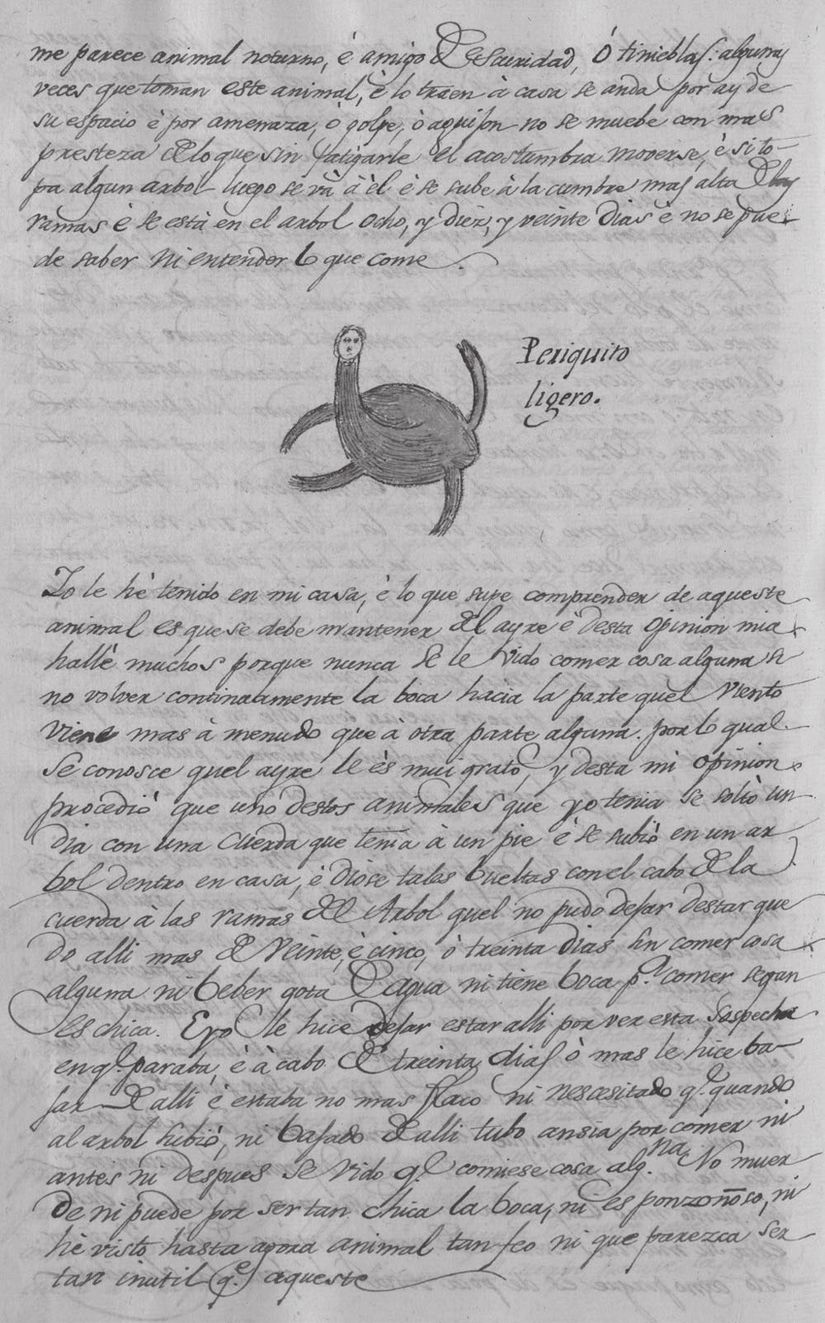 me parece animal noturno, è amigo de escuridad, ò tinieblas: algunas
veces que toman este animal, è lo traen à casa se anda por ay de
su espacio è por amenaza, ò golpe, ò aguijon no se muebe con mas
presteza de lo que sin fatigarle el acostumbra moverse, è si to-
pa algun arbol luego se và à èl è se sube à la cumbre mas alta de las
ramas è se està en el arbol ocho, y diez, y veinte dias è no se pue-
de saber ni entender lo que come.
Periquito
ligero.
Io le hè tenido en mi casa, è lo que supe comprender de aqueste
animal es que se debe mantener del ayre è desta opinion mia
hallè muchos porque nunca se le vido comer cosa alguna si
no volver continuamente la boca hacia la parte quel viento
viene mas à menudo que à otra parte alguna. por lo qual
se conosce quel ayre le ès mui grato, y desta mi opinion
procediò que uno destos animales que yo tenia se soltò un
dia con una cuerda que tenia à un pie è se subiò en un ar
bol dentro en casa, è diòse tales bueltas con el cabo de la
cuerda à las ramas del Arbol quel no pudo dejar destar que
do alli mas de veinte, è cinco, ò treinta dias sin comer cosa
alguna ni beber gota de agua ni tiene boca p.ª comer segun
es chica. E yo le hice dejar estar alli por ver esta sospecha
en q.e paraba, è à cabo de treinta dias ò mas le hice ba-
jar de alli è estaba no mas flaco ni nescesitado q.e quando
al arbol subiò, ni bajado de alli tubo ansia por comer ni
antes ni despues se vido q.e comiese cosa alg.na No muer
de ni puede por ser tan chica la boca, ni es ponzoñoso, ni
hè visto hasta agora animal tan feo ni que parezca ser
tan inutil q.e aqueste